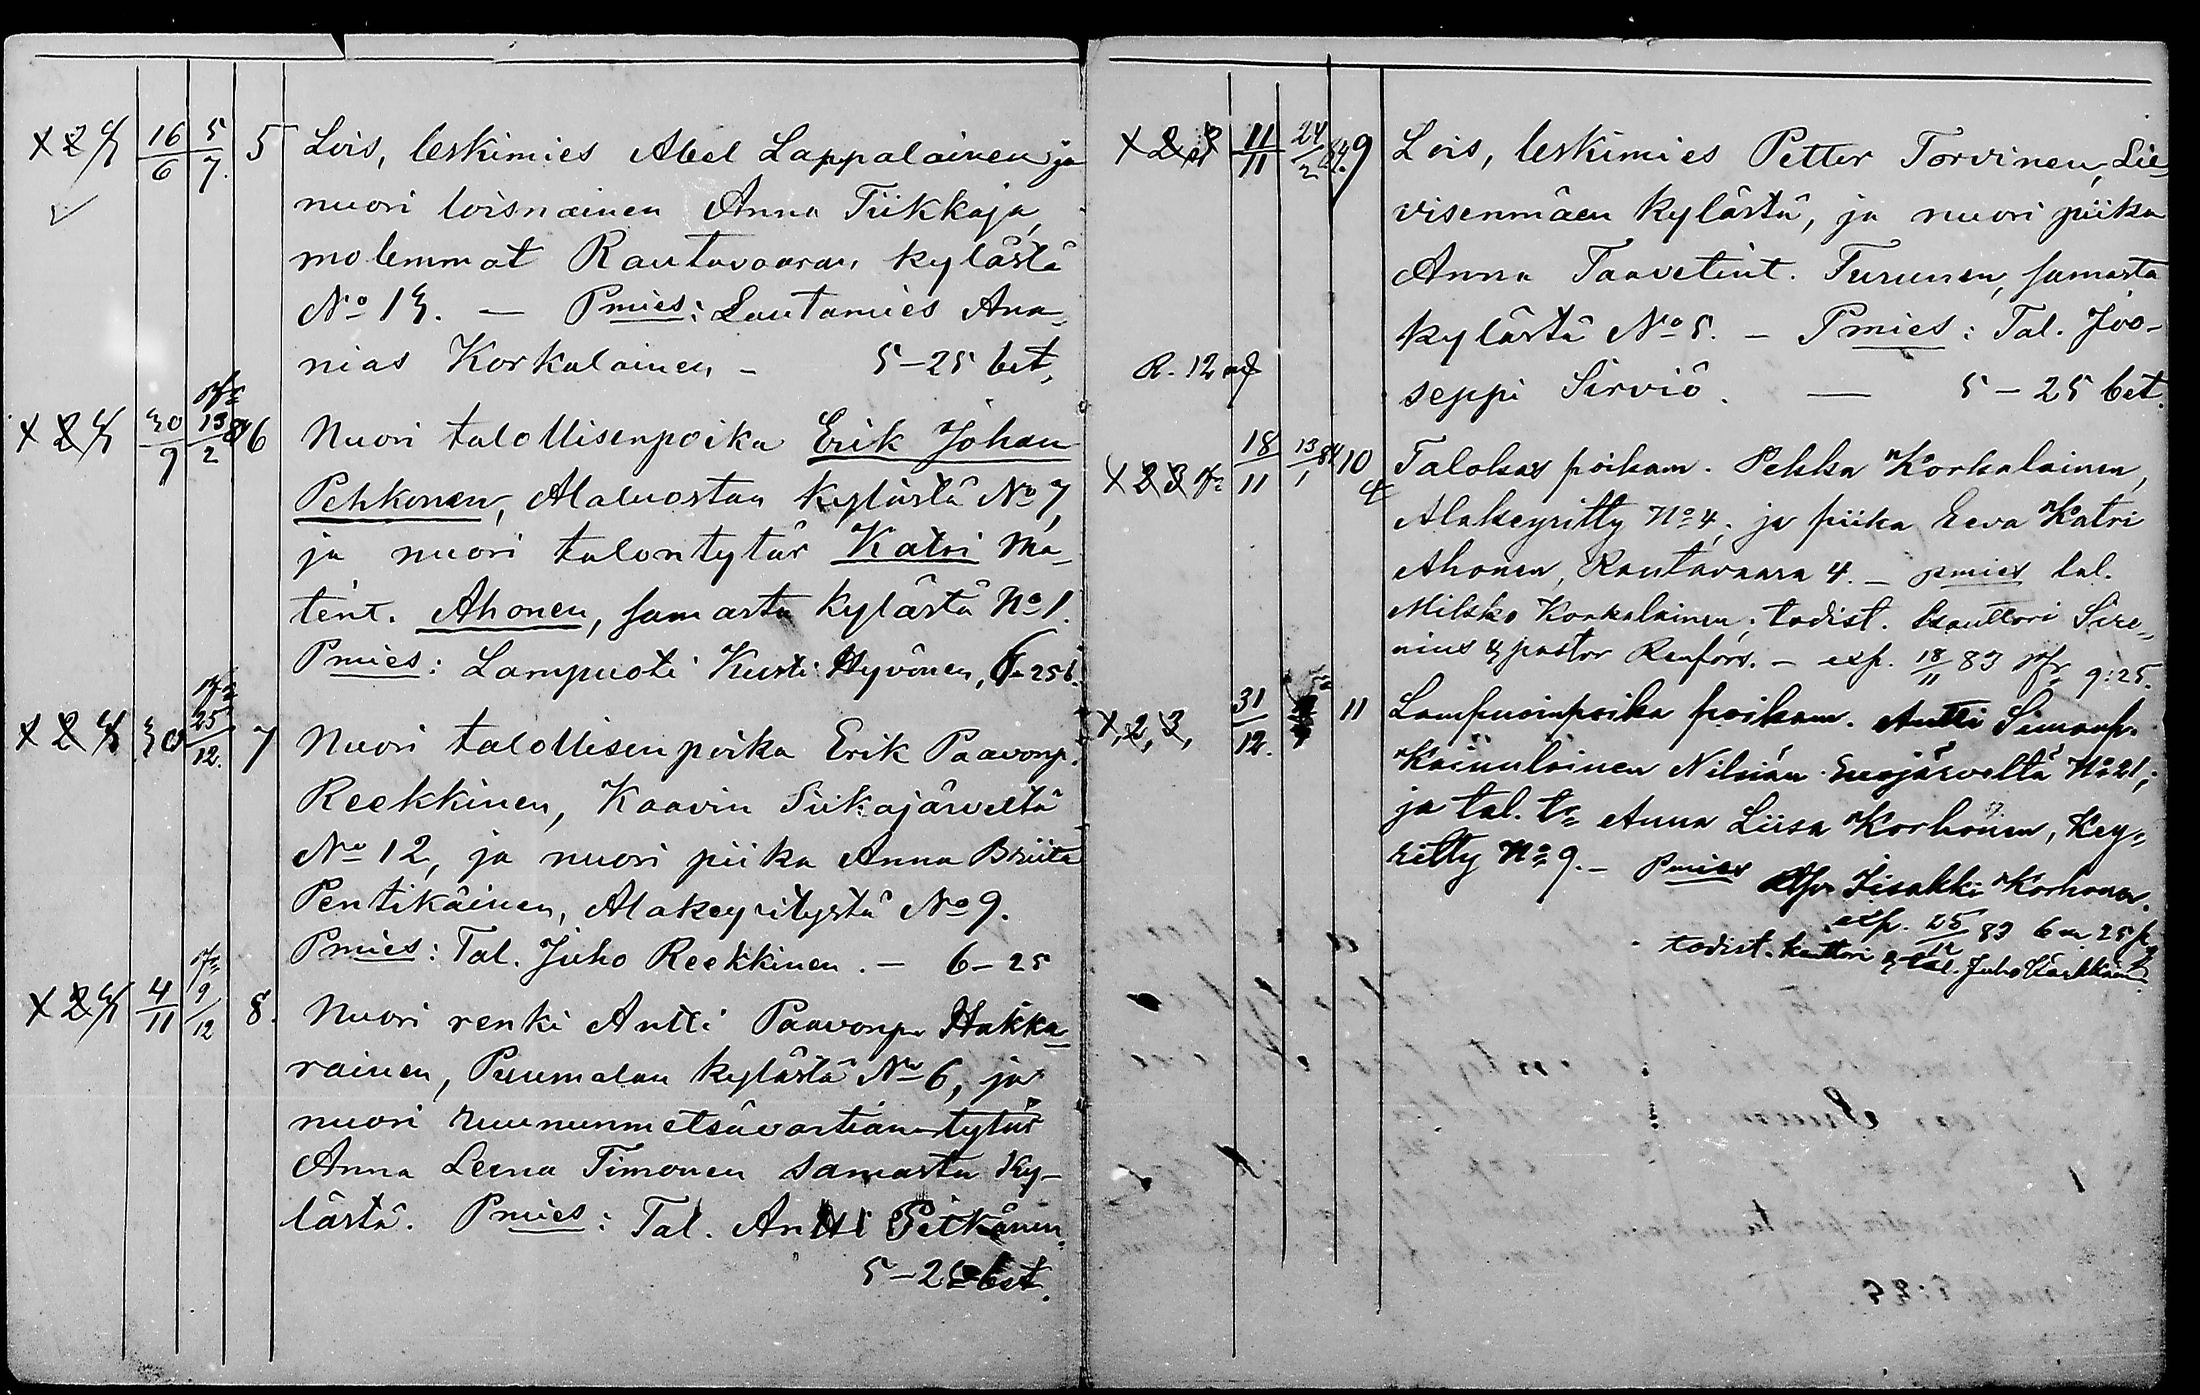 X 2 3 16/6 5/7. 5 Lois, leskimies Abel Lappalainen ja
nuori loisnainen Anna Tiikkaja,
molemmat Rautavaaran kylästä
No 13. — Pmies: Lautamies Ana-
nias Korkalainen - 5-25 bet.
X 2 3 30/9 13/2 84 6 Nuori talollisenpoika Erik Johan
Pehkonen, Alaluostan kylästä No 7,
ja nuori talontytär Katri Ma-
tint. Ahonen, samasta kylästä No 1.
Pmies: Lampuoti Kusti Hyvönen, 6-25 b.
X 2 3 30 25/12. 7 Nuori talollisenpoika Erik Paavonp.
Reekkinen, Kaavin Siikajärveltä
No 12, ja nuori piika Anna Briita
Pentikäinen, Alakeyritystä No 9.
Pmies: Tal. Juho Reekkinen. - 6-25
X 2 3 4/11 9/12 8. Nuori renki Antti Paavonp. Hakka-
rainen, Puumalan kylästä No 6, ja
nuori ruununmetsävartian tytär
Anna Leena Timonen samasta ky-
lästä. Pmies: Tal. Antti Pitkänen.
5-25 bet.
X 2 3 11/11 24/2 84. 9 Lois, leskimies Petter Torvinen, Lie-
visenmäen kylästä, ja nuori piika
Anna Taavetint. Turunen, samasta
kylästä No 5. - Pmies: Tal. Joo-
R. 12 mf seppi Sirviö. — 5-25 bet.
X 2 3 18/11 13/1 84 10 Talokas poikam. Pekka Korkalainen,
Alakeyritty No 4; ja piika Eeva Katri
Ahonen, Rautavaara 4. - pmies tal.
Mikko Korkalainen; todist. kanttori Sire-
nius & pastor Renfors. - exp. 18/11 83 9:25.
X, 2, 3, 31/12. 11 Lampuoinpoika poikam. Antti Simonp.
Kainulainen Nilsiän No 21;
ja tal. tr Anna Liisa Korhonen, Key-
ritty No 9. - Pmies Iisakki Korhonen.
exp. 25/12 83 6 m 25 p
todist. kanttori & tal. Juho